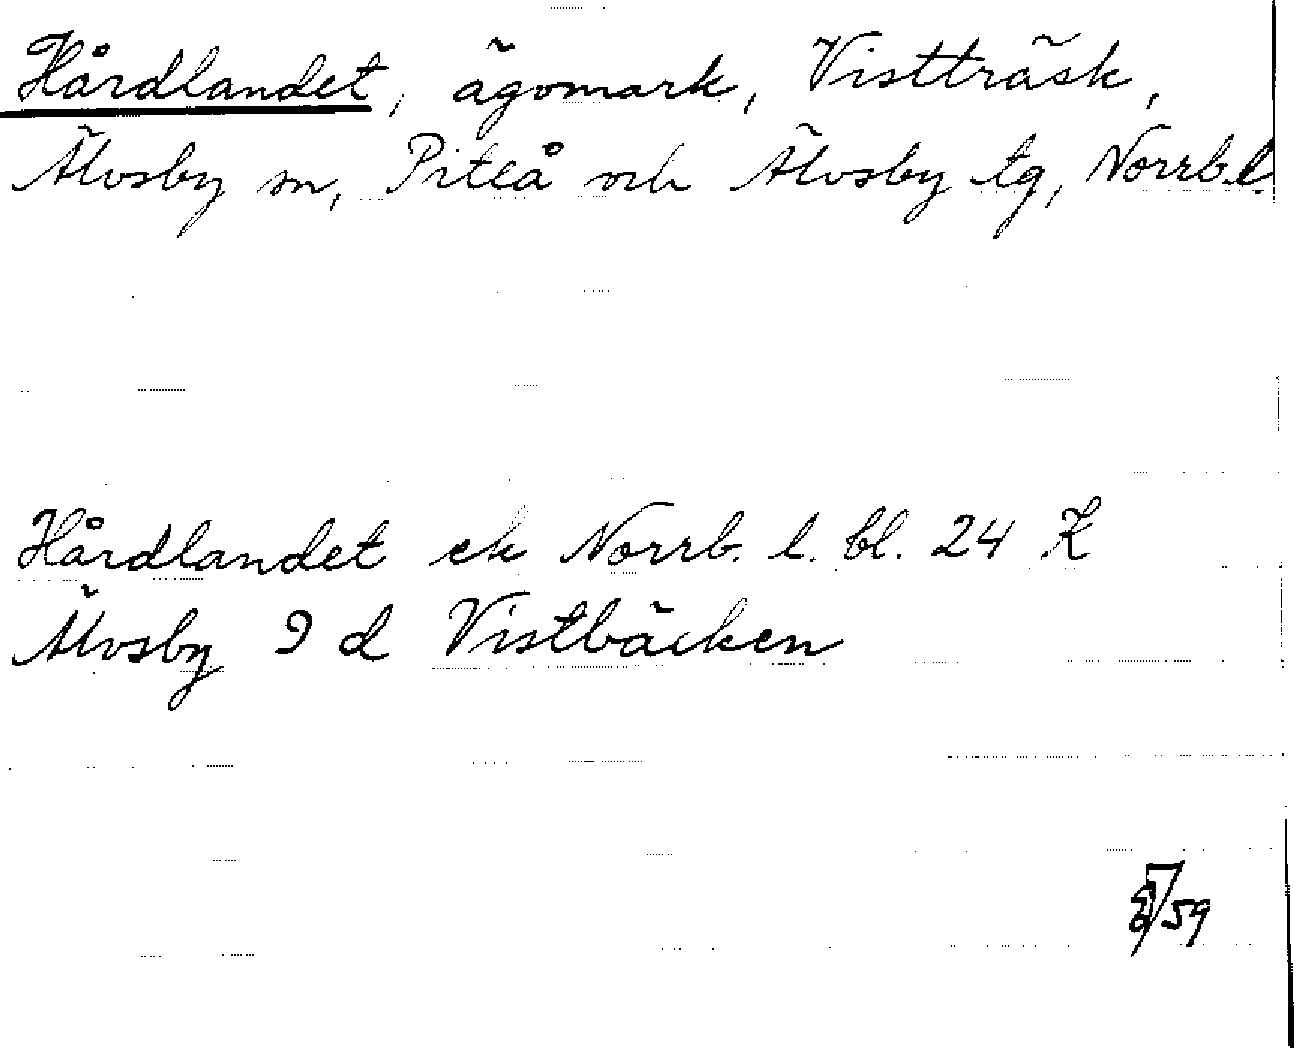 Hårdlandet, ägomark, Vistträsk,
Älvsby sn, Piteå och Älvsby tg, Norrb.l.
Hårdlandet ek Norrb. l. bl. 24 K
Älvsby 9 d Vistbäcken
59